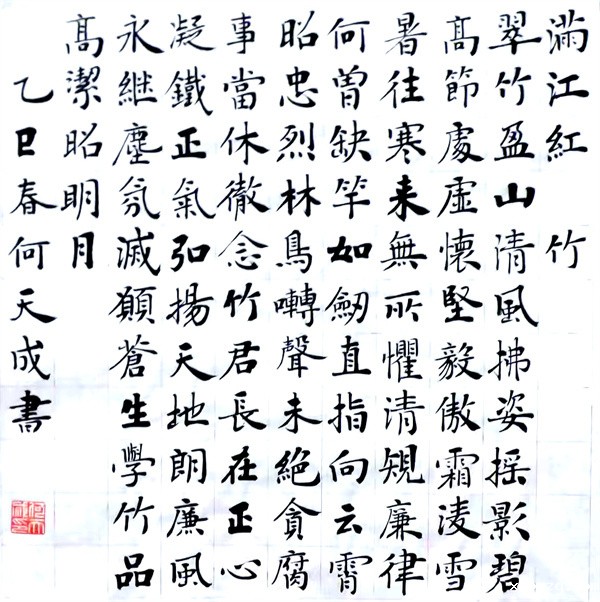 滿江紅 竹
翠竹盈山清風拂姿摇影碧
髙節處虛懷堅毅傲霜凌雪
暑往寒来無所懼清規廉律
何曾缺竿如劒直指向云霄
昭忠烈林鳥囀聲未絕貪腐
事當休徹念竹君長在正心
凝鐵正氣弘揚天地朗廉風
永継塵氛滅願蒼生學竹品
髙潔昭明月
乙巳春何天成書